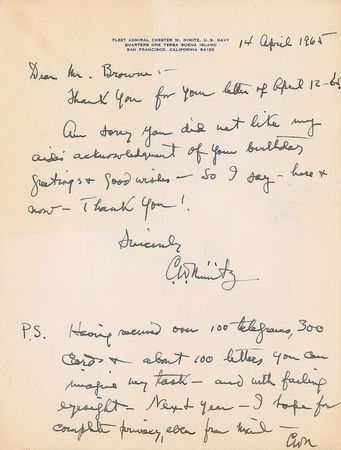 FLEET ADMIRAL CHESTER W. NIMITZ, U. S. NAVY
QUARTERS ONE YERBA BUENA ISLAND
SAN FRANCISCO, CALIFORNIA 94130
14 April 1965
Dear Mr. Browne:-
Thank You for your letter of April 12-65.
Am sorry you did not like my
aide's acknowledgment of your birthday
greetings & good wishes - So I say - here &
now - Thank You!
Sincerely
C.W. Nimitz
P.S. Having received over 100 telegrams, 300
Cards & about 100 letters you can
imagine my task - and with failing
eyesight - Next year - I hope for
complete privacy, even from mail -
CWN